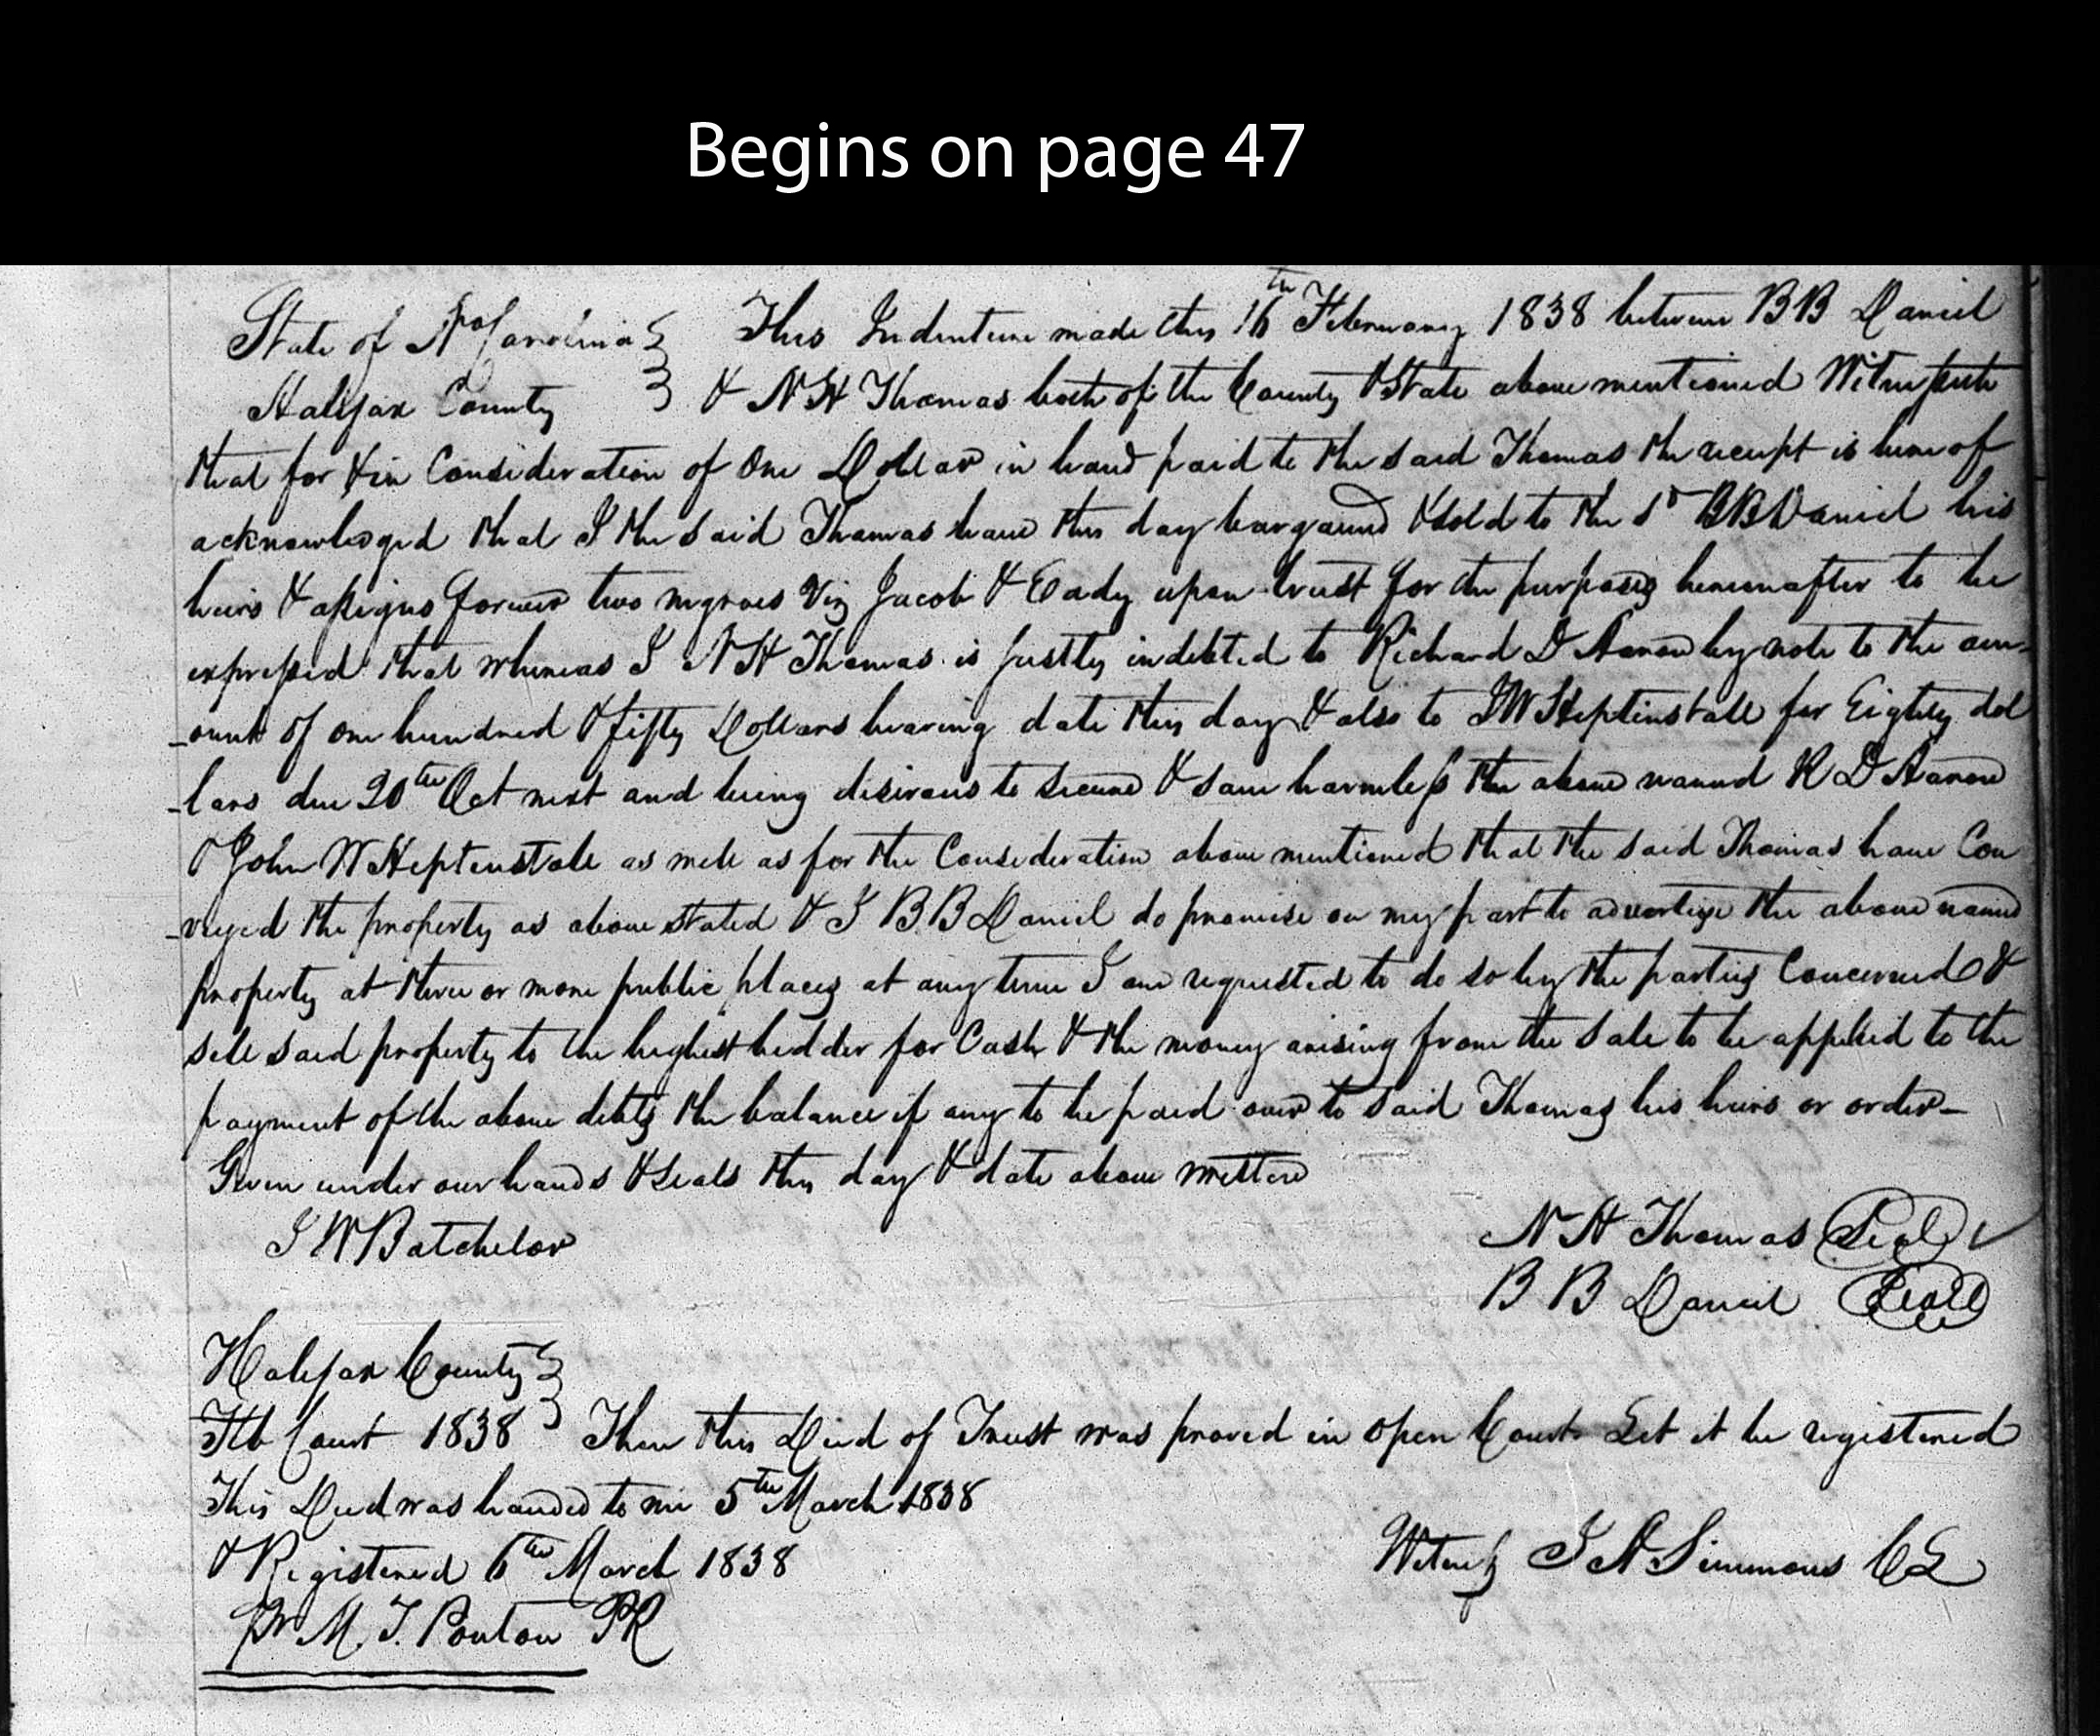 Begins on page 47
State of No Carolina } This Indenture made this 16th February 1838 between B B Daniel
Halifax County } & N H Thomas both of the County & State above mentioned Witnesseth
that for & in Consideration of One Dollar in hand paid to the said Thomas the receipt is hereof
acknowledged that I the said Thomas have this day bargained & sold to the sd B B Daniel his
heirs & assigns forever two negroes Viz Jacob & Eady upon trust for the purposes hereinafter to be
expressed that whereas I N H Thomas is justly indebted to Richard D by note to the am-
-ount of one hundred & fifty Dollars bearing date this day & also to J W Heptinstall for Eighty dol
-lars due 20th Oct next and being desirous to secure & save harmless the above named R D
& John W Heptenstall as well as for the Consideration above mentioned that the said Thomas have Con
-veyed the property as above stated & I B B Daniel do promise on my part to advertise the above named
property at three or more public places at any time I am requested to do so by the parties Concerned &
sell said property to the highest bidder for Cash & the money arising from the sale to be applied to the
payment of the above debts the balance if any to be paid over to said Thomas his heirs or order-
Given under our hands & seals this day & date above written
J W Batchelor N H Thomas Seal
B B Daniel Seal
Halifax County }
Feb Court 1838 } Then this Deed of Trust was proved in open Court Let it be registered
This Deed was handed to me 5th March 1838
& Registered 6th March 1838 Witness J H Simmons CC
Pr M. T. Ponton PR